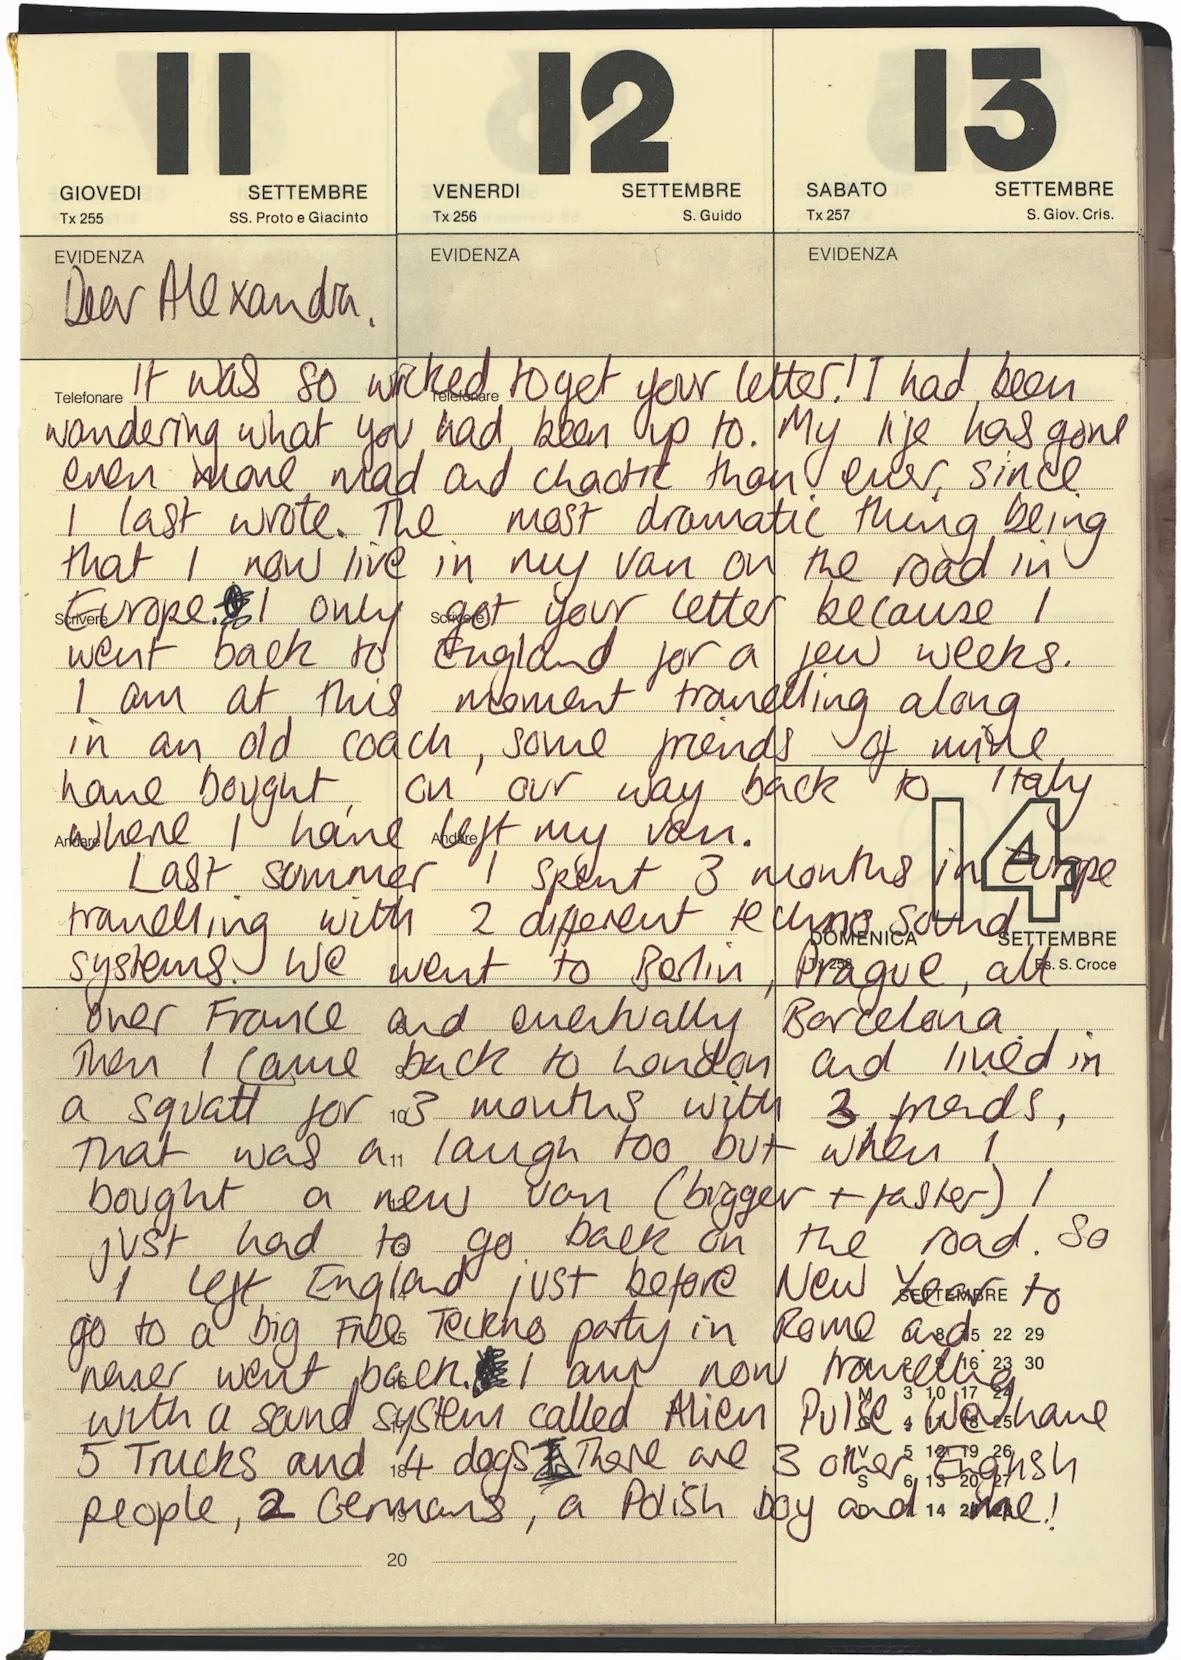 11 12 13
GIOVEDI SETTEMBRE VENERDI SETTEMBRE SABATO SETTEMBRE
Tx 255 SS. Proto e Giacinto Tx 256 S. Guido Tx 257 S. Giov. Cris.
EVIDENZA EVIDENZA EVIDENZA
Dear Alexandra,
It was so wicked to get your letter! I had been
Telefonare Telefonare
wondering what you had been up to. My life has gone
even more mad and chaotic than ever, since
I last wrote. The most dramatic thing being
that I now live in my van on the road in
Europe. I only got your letter because I
Scrivere Scrivere
went back to England for a few weeks.
I am at this moment travelling along
in an old coach, some friends of mine
have bought, on our way back to Italy
where I have left my van.
Andare Andare
14
Last summer I spent 3 months in Europe
travelling with 2 different techno sound
DOMENICA SETTEMBRE
systems. We went to Berlin, Prague, all
Es. S. Croce
over France and eventually Barcelona.
Then I came back to London and lived in
a squatt for 3 months with 3 friends,
10
That was a laugh too but when I
11
bought a new van (bigger + faster) I
just had to go back on the road. So
I left England just before New Year to
SETTEMBRE
go to a big Free Tekno party in Rome and
8 15 22 29
never went back. I am now travelling
2 9 16 23 30
M 3 10 17 24
with a sound system called Alien Pulse We have
4 11 18 25
5 Trucks and 4 dogs There are 3 other English
18 V 5 12 19 26
S 6 13 20 27
people, 2 Germans, a Polish boy and me!
14
20